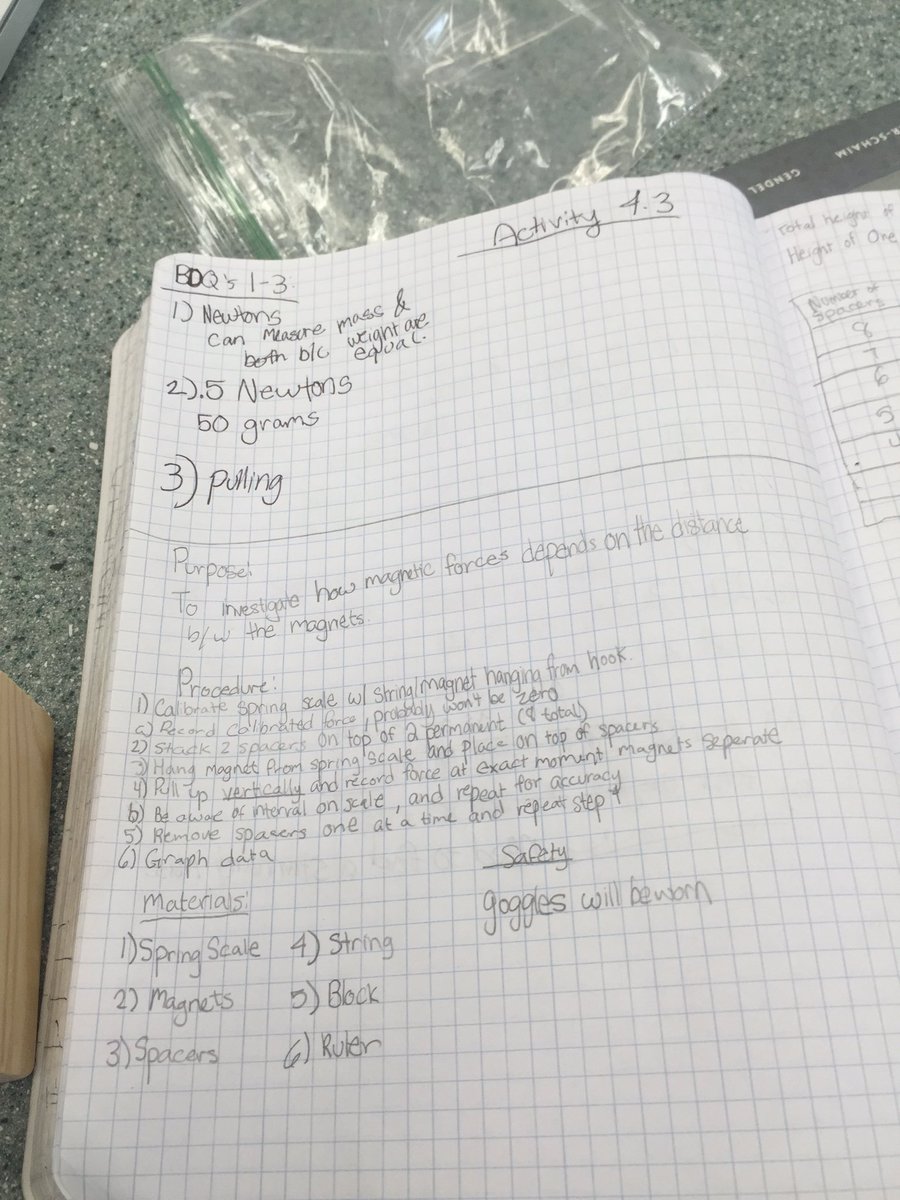 R-SCHAIM
GENDEL
Activity 4.3
BDQ's 1-3:
1) Newtons
can Measure mass &
both b/c weight are
equal.
2) .5 Newtons
50 grams
3) Pulling
Purpose:
To investigate how magnetic forces depends on the distance
b/w the magnets.
Procedure:
1) Calibrate spring scale w/ string/magnet hanging from hook.
a) Record calibrated force, probably won't be zero
2) Stack 2 spacers on top of 2 permanent (8 total)
3) Hang magnet from spring scale and place on top of spacers
4) Pull up vertically and record force at exact moment magnets seperate
b) Be aware of interval on scale, and repeat for accuracy
5) Remove spacers one at a time and repeat step 4
6) Graph data
Safety
goggles will be worn
Materials:
1) Spring Scale 4) String
2) Magnets 5) Block
3) Spacers 6) Ruler
Total height of
Height of One
Number of
Spacers
8
7
6